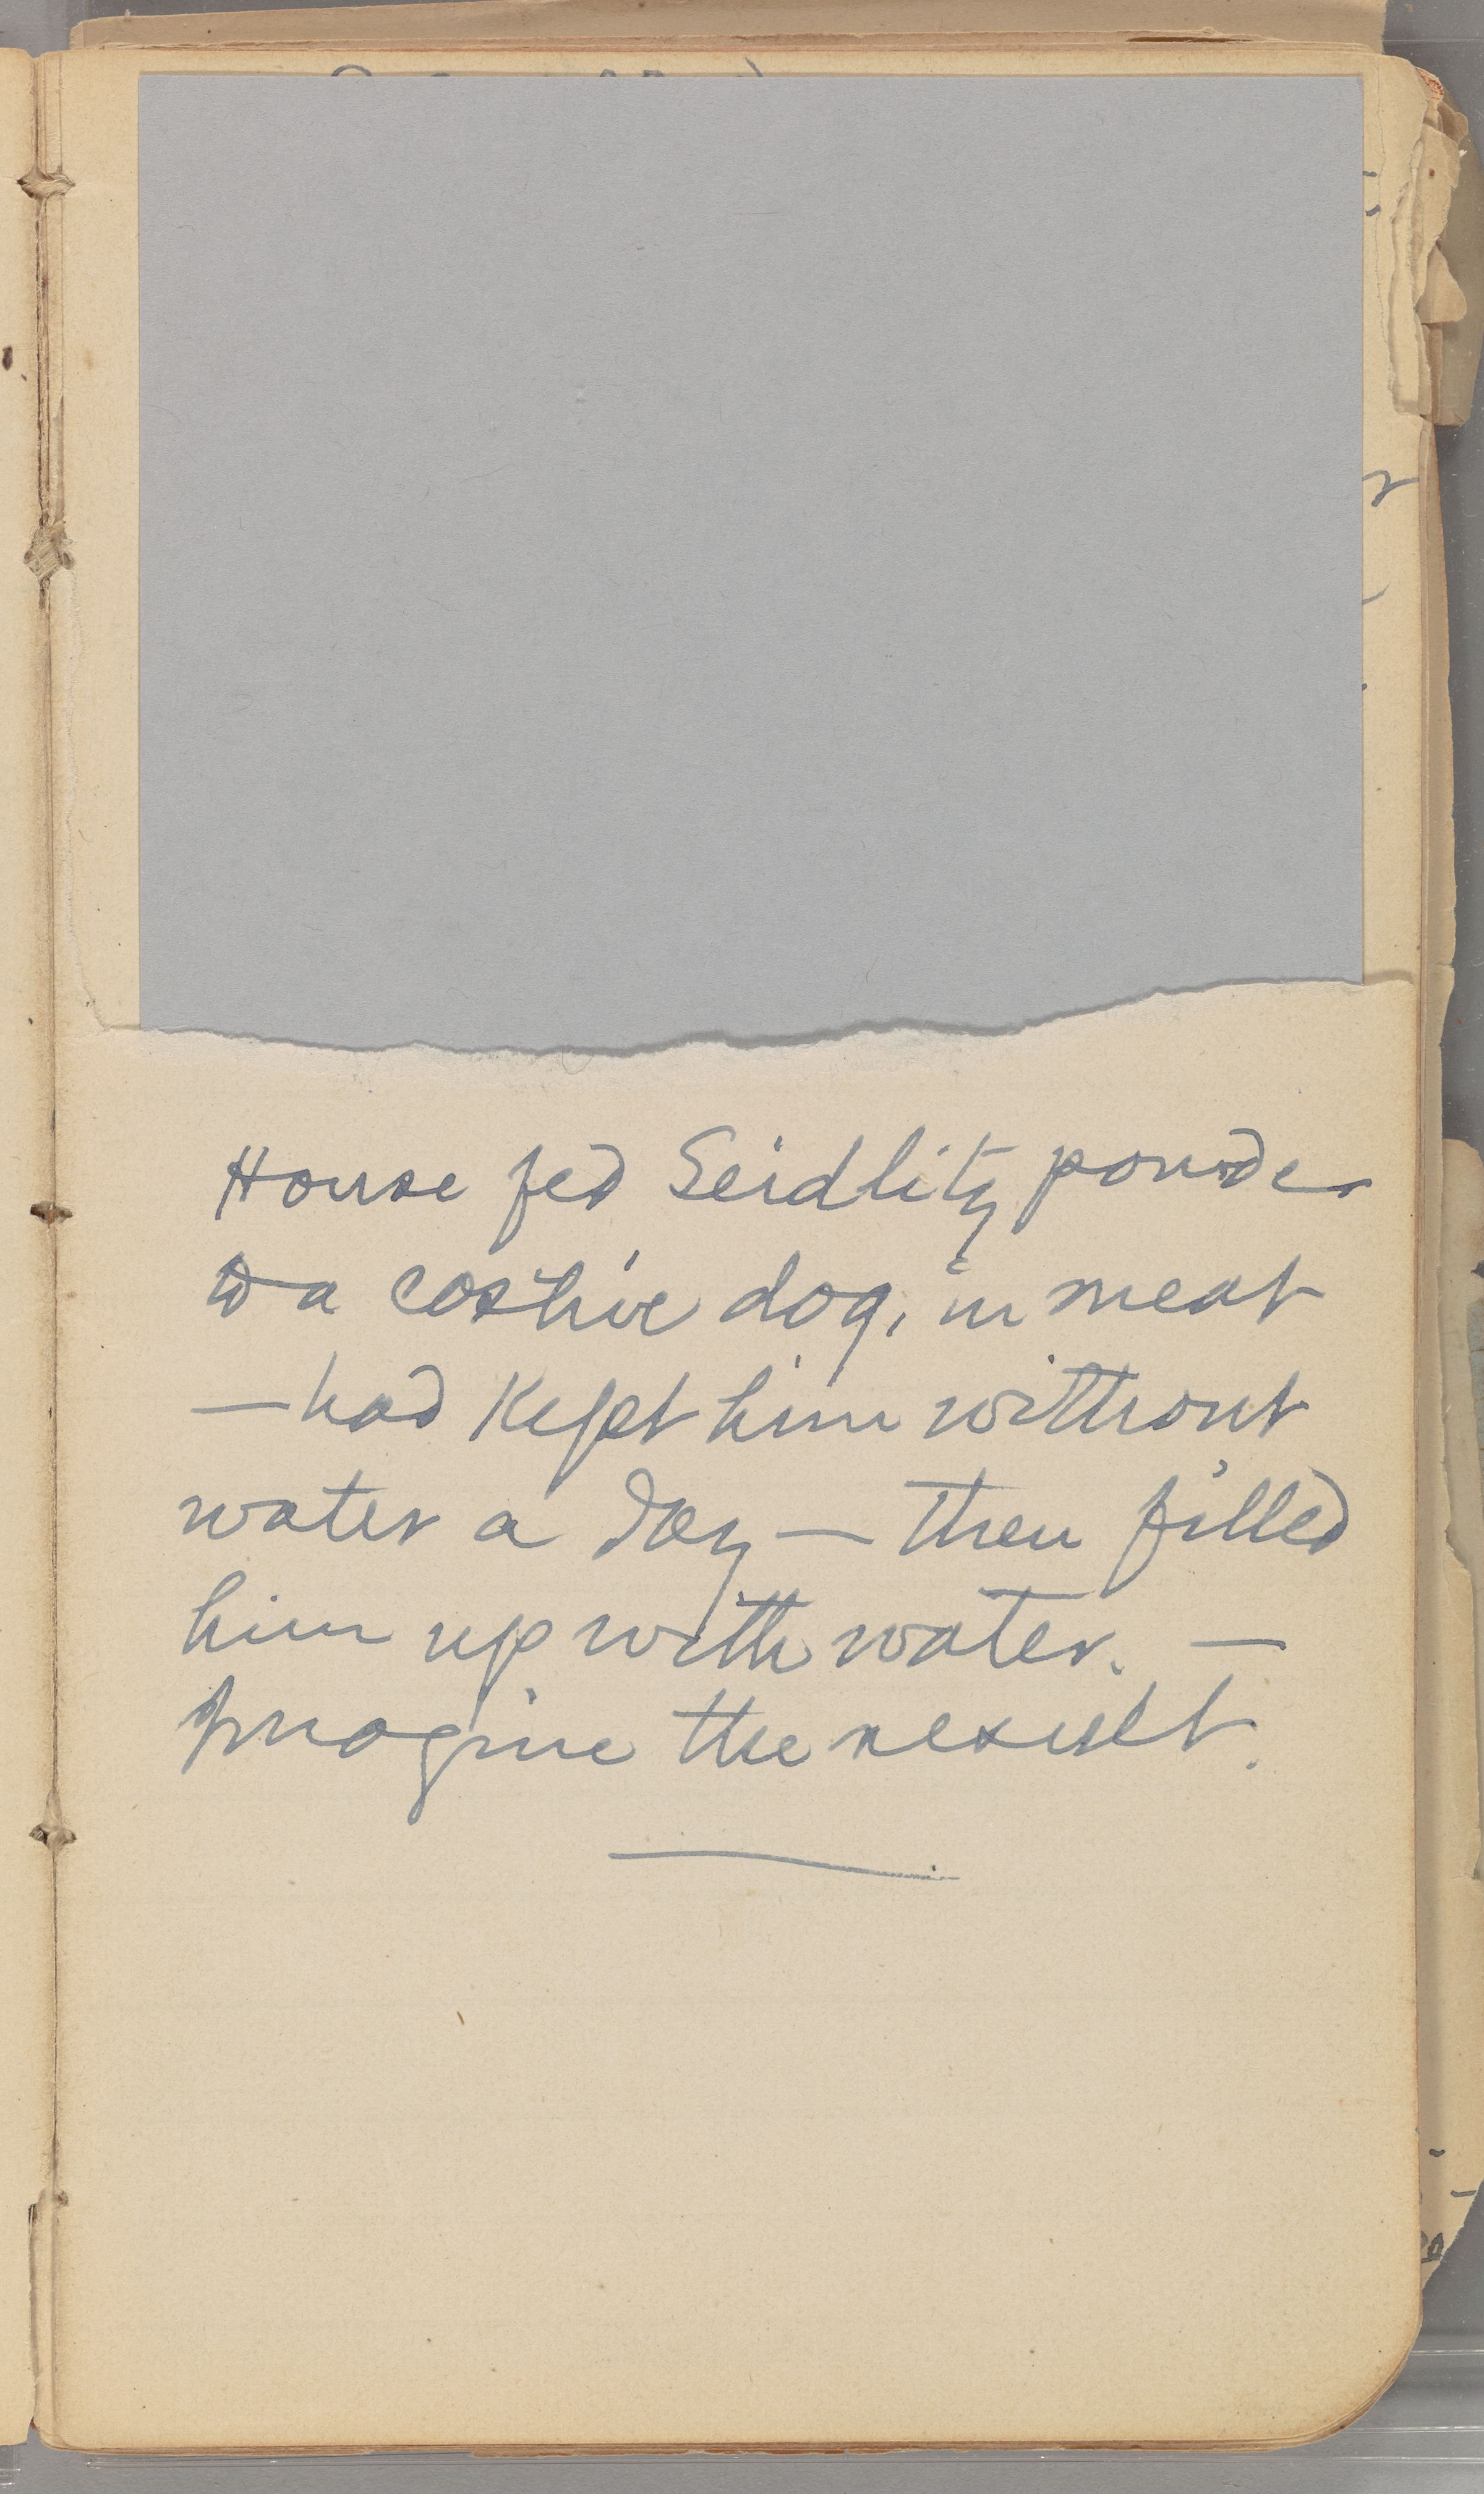 House fed Seidlitz powder
to a costive dog, in meat
— had kept him without
water a day — then filled
him up with water. —
Imagine the result.